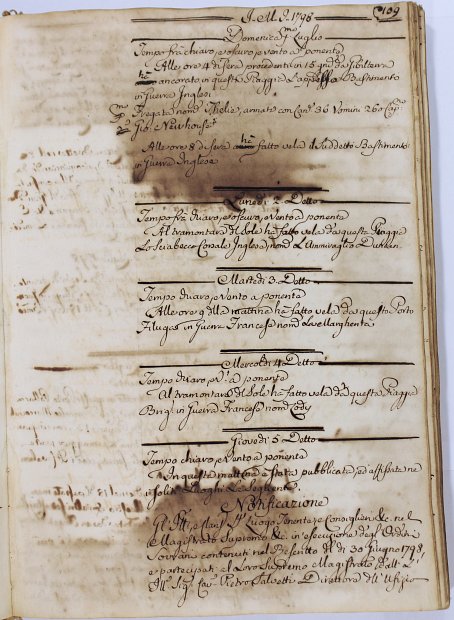 109
J. M. J. 1798
Domenica pmo Luglio
Tempo frà chiaro, e oscuro, e vento a ponente
Alle ore 4 di sera procedente in 15 gni da Gibilterra
ha ancorato in questa Spiaggia L'appsso Bastimento
in Guerra Inglese
Fregata nomta Thelie, armata con Cani 36 Vomini 260 Capno
Gio. Newhouse
Alle ore 8 di sera ha fatto vela il Suddetto Bastimento
in Guerra Inglese
Lunedì 2. Detto
Tempo frà chiaro, e oscuro, e Vento a ponente
Al tramontare del Sole ha fatto vela da questa Spiaggia
Lo Sciabecco Corsale Inglese, nomto L'Ammiraglio Duncan
Martedì 3. Detto
Tempo chiaro, e Vento a ponente
Alle ore 9 della mattina ha fatto vela da questo Porto
Filuga in Guerra Francese nomta La
Mercoldì 4. Detto
Tempo chiaro, e Va a ponente
Al tramontare del Sole ha fatto vela da questa Spiaggia
Brigno in Guerra Francese nomto Cody
Giovedì 5. Detto
Tempo chiaro, e Vento a ponente
In questa mattina è stata pubblicata, ed affissata ne
i soliti Luoghi la Seguente
Notificazione
Gl' Illmi, e Luogo Tenente, e Consiglieri &c. nel
Magistrato Supremo &c. in esecuzione degl' Ordini
Sovrani contenuti nel Rescritto del dì 30 Giugno 1798,
e partecipati al Loro Supremo Magistrato dall'
Illmo Sigre Cavre Pietro Salvetti Direttore dell' Ufizio